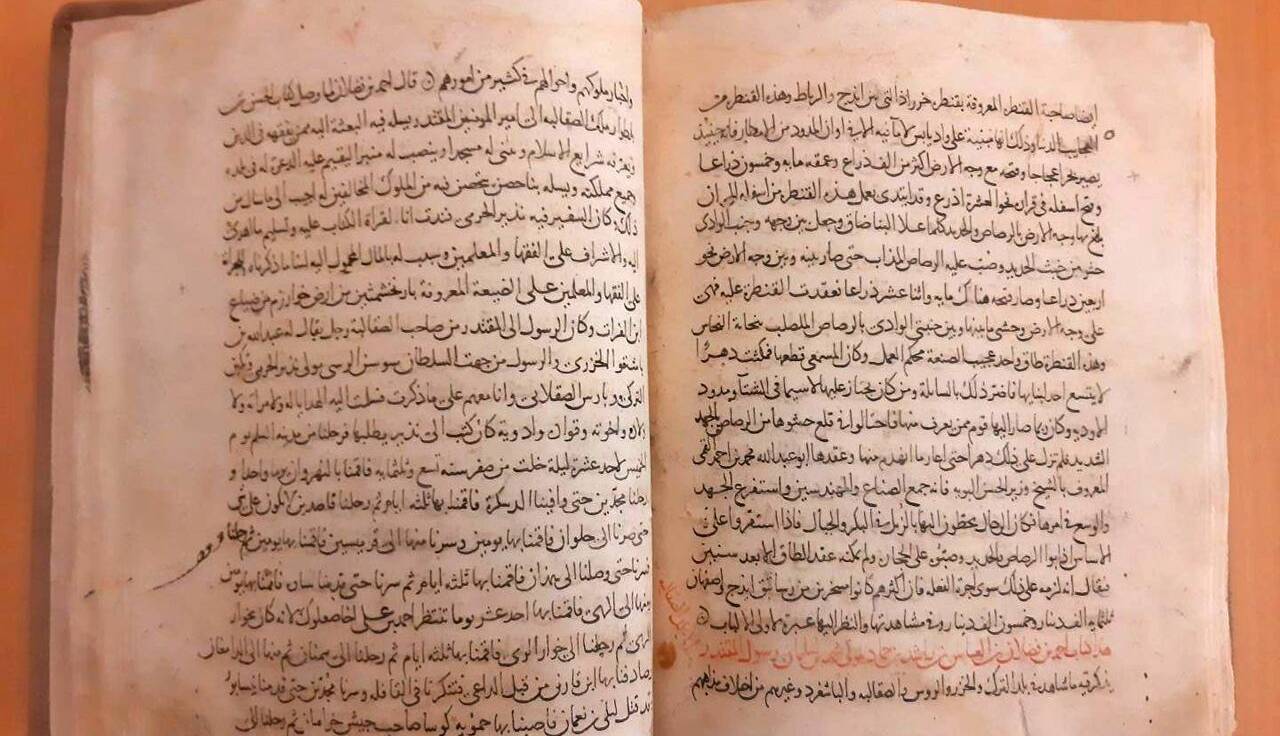 ايضا صاحبة القنطرة المعروفة بقنطرة خرراذ التي بين ايذج والرباط وهذه القنطرة من
وذلك انها مبنية على واد يابس لا ماء فيه الا في اوان المدود من الامطار فانه حينئذ
يصير بحرا عجاجا وفتحه مع وجه الارض اكثر من الف ذراع وعمقه مايه وخمسون ذراعا
وفتح اسفله في قراره نحو العشرة اذرع وقد ابتدئ بعمل هذه القنطرة من اسفلها الى ان
بلغ بها وجه الارض بالرصاص والحديد كلما علا البنا ضاق وجعل بين وجهه وجنب الوادي
حشو من خبث الحديد وصب عليه الرصاص المذاب حتى صار بينه وبين وجه الارض نحو
اربعين ذراعا وصار فتحه هناك مايه واثنا عشر ذراعا فعقدت القنطرة عليه فهي
على وجه الارض وحشى ما بينها وبين جنبتي الوادي بالرصاص المصلب بنحاتة النحاس
وهذه القنطرة طاق واحد عجيب الصنعة محكم العمل وكان المسمعي قطعها فمكثت دهرا
لا يتسع احد لبنايها فاضر ذلك بالسابلة ومن كان يجتاز عليها لا سيما في الشتا ومدود
الاودية وكان ربما صار اليها قوم ممن يقرب منها فاحتالوا في قلع حشوها من الرصاص بالجهد
الشديد فلم تزل على ذلك دهرا حتى اعاد ما انهدم منها وعقدها ابو عبدالله محمد بن احمد القمي
المعروف بالشيخ وزير الحسن البويه فانه جمع الصناع والمهندسين واستفرغ الجهد
والوسع في امرها فكان الرجال يحطون اليها بالزبل في البكر والحبال فاذا استقروا على
الاساس اذابوا الرصاص والحديد وصبوه على الحجارة ولم يمكنه عقد الطاق الا بعد سنين
فيقال انه لزمه على ذلك سوى اجرة الفعلة فان اكثرهم كانوا مسخرين من رساتيق ايذج واصفهان
ثلثمايه الف دينار وخمسون الف دينار وفي مشاهدتها والنظر اليها عبرة لاولي الالباب
هذا كتاب احمد بن فضلان بن العباس بن راشد بن حماد مولى محمد بن سليمان رسول المقتدر
يذكر فيه ما شاهد في بلد الترك والخزر والروس والصقالبه والباشغرد وغيرهم من اختلاف مذاهبهم
واخبار ملوكهم واحوالهم في كثير من امورهم قال احمد بن فضلان لما وصل كتاب الحسن بن
يلطوار ملك الصقالبه الى امير المومنين المقتدر يسله فيه البعثة اليه ممن يفقهه في الدين
ويعرفه شرايع الاسلام ويبني له مسجدا وينصب له منبرا ليقيم عليه الدعوة له في بلده
وجميع مملكته ويسله بنا حصن يتحصن فيه من الملوك المخالفين له اجيب الى ما سال من
ذلك وكان السفير فيه نذير الحرمي فندبت انا لقراة الكتاب عليه وتسليم ما اهدي
اليه والاشراف على الفقها والمعلمين وسبب له بالمال المحمول اليه لبنا ما ذكرناه وللجراية
على الفقها والمعلمين على الضيعة المعروفة بارثخشمثين من ارض خوارزم من ضياع
ابن الفرات وكان الرسول الى المقتدر من صاحب الصقالبة رجل يقال له عبدالله بن
باشتوا الخزري والرسول من جهة السلطان سوسن الرسي مولى نذير الحرمي وتكين
التركي وبارس الصقلابي وانا معهم على ما ذكرت فسلمت اليه الهدايا له ولامراته ولا
ولاده ولاخوته وقواده وادوية كان كتب الى نذير يطلبها فرحلنا من مدينة السلم يوم
الخميس لاحد عشرة ليلة خلت من صفر سنه تسع وثلثمايه فاقمنا بالنهروان يوما واحدا و
رحلنا مجدين حتى وافينا الدسكرة فاقمنا بها ثلثة ايام ثم رحلنا قاصدين لا نلوي على شي
حتى صرنا الى حلوان فاقمنا بها يومين وسرنا منها الى قرميسين فاقمنا بها يومين ثم رحلنا
فسرنا حتى وصلنا الى همدان فاقمنا بها ثلثة ايام ثم سرنا حتى قدمنا ساوه فاقمنا بها يومين
ومنها الى الري فاقمنا بها احد عشر يوما ننتظر احمد بن علي اخا صعلوك لانه كان بخوار
الري ثم رحلنا الى خوار الري فاقمنا بها ثلثة ايام ثم رحلنا الى سمنان ثم منها الى الدامغان
صادفنا بها ابن قارن من قبل الداعي فتنكرنا في القافلة وسرنا مجدين حتى قدمنا نيسابور
وقد قتل ليلى بن نعمان فاصبنا بها حمويه كوسا صاحب جيش خراسان ثم رحلنا الى